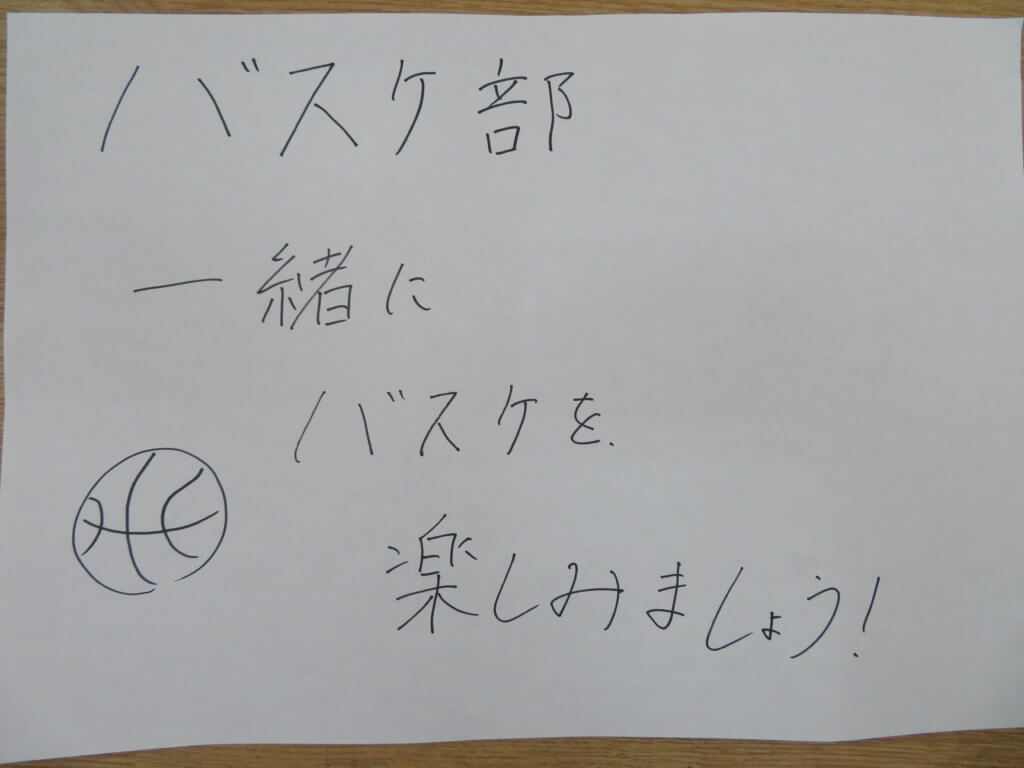 バスケ部
一緒に
バスケを
楽しみましょう!